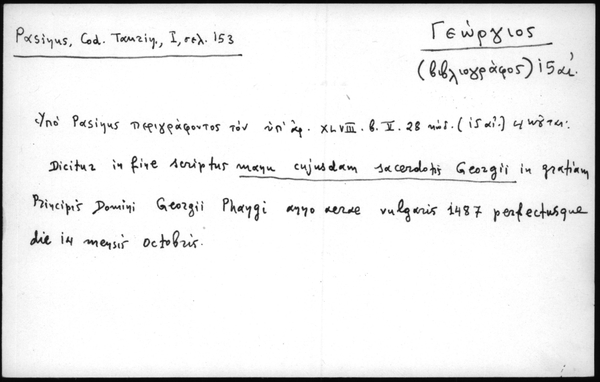 Pasinus, Cod. Taurin., I, σελ. 153
Γεώργιος
(βιβλιογράφος) ις αἰ.
Ὑπὸ Pasinus περιγράφοντος τὸν ὑπ' ἀρ. XLVIII. b. V. 28 κώδ. (ις αἰ.)
Dicitur in fine scriptus manu cujusdam sacerdotis Georgii in gratiam
Principis Domini Georgii Phangi anno aerae vulgaris 1487 perfectusque
die 14 mensis Octobris.